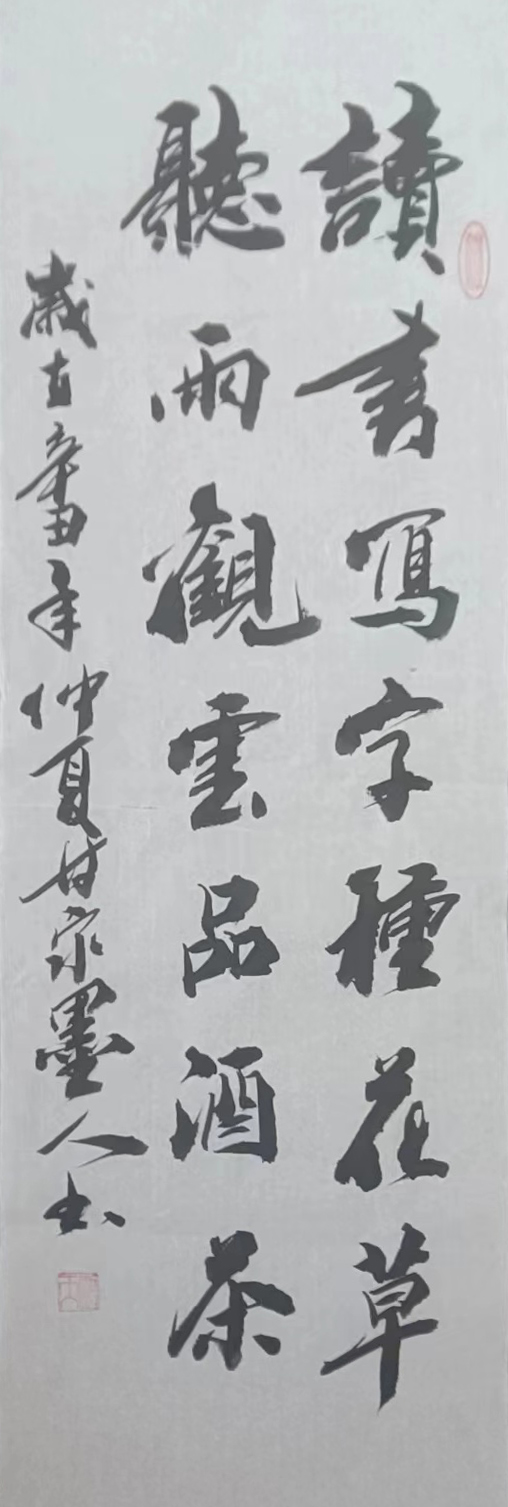 讀書寫字種花草
聽雨觀雲品酒茶
歲在辛丑年仲夏甘泉墨人书